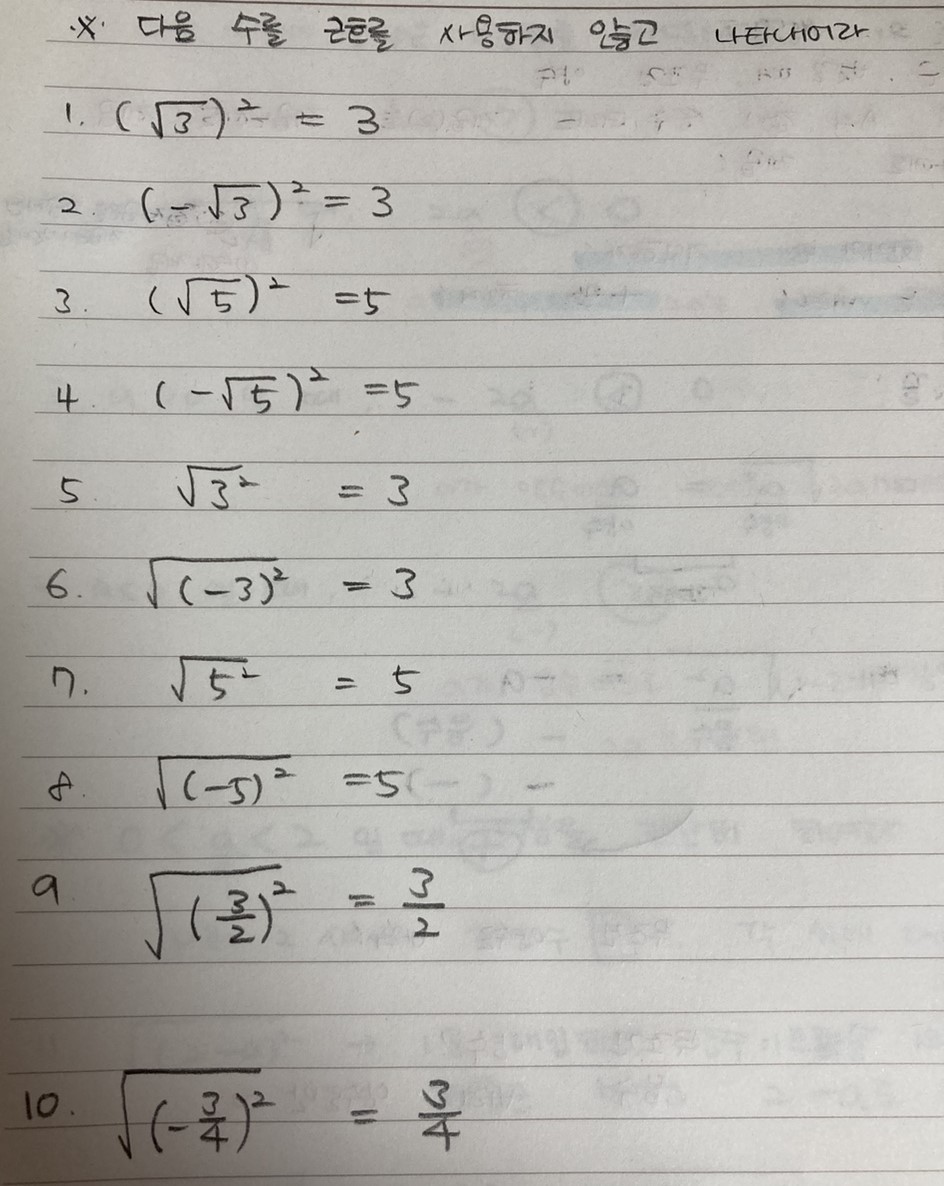 ※ 다음 수를 근호를 사용하지 않고 나타내어라
1. (√3)² = 3
2. (-√3)² = 3
3. (√5)² = 5
4. (-√5)² = 5
5 √3² = 3
6. √(-3)² = 3
7. √5² = 5
8. √(-5)² = 5
9 √(3/2)² = 3/2
10. √(-3/4)² = 3/4